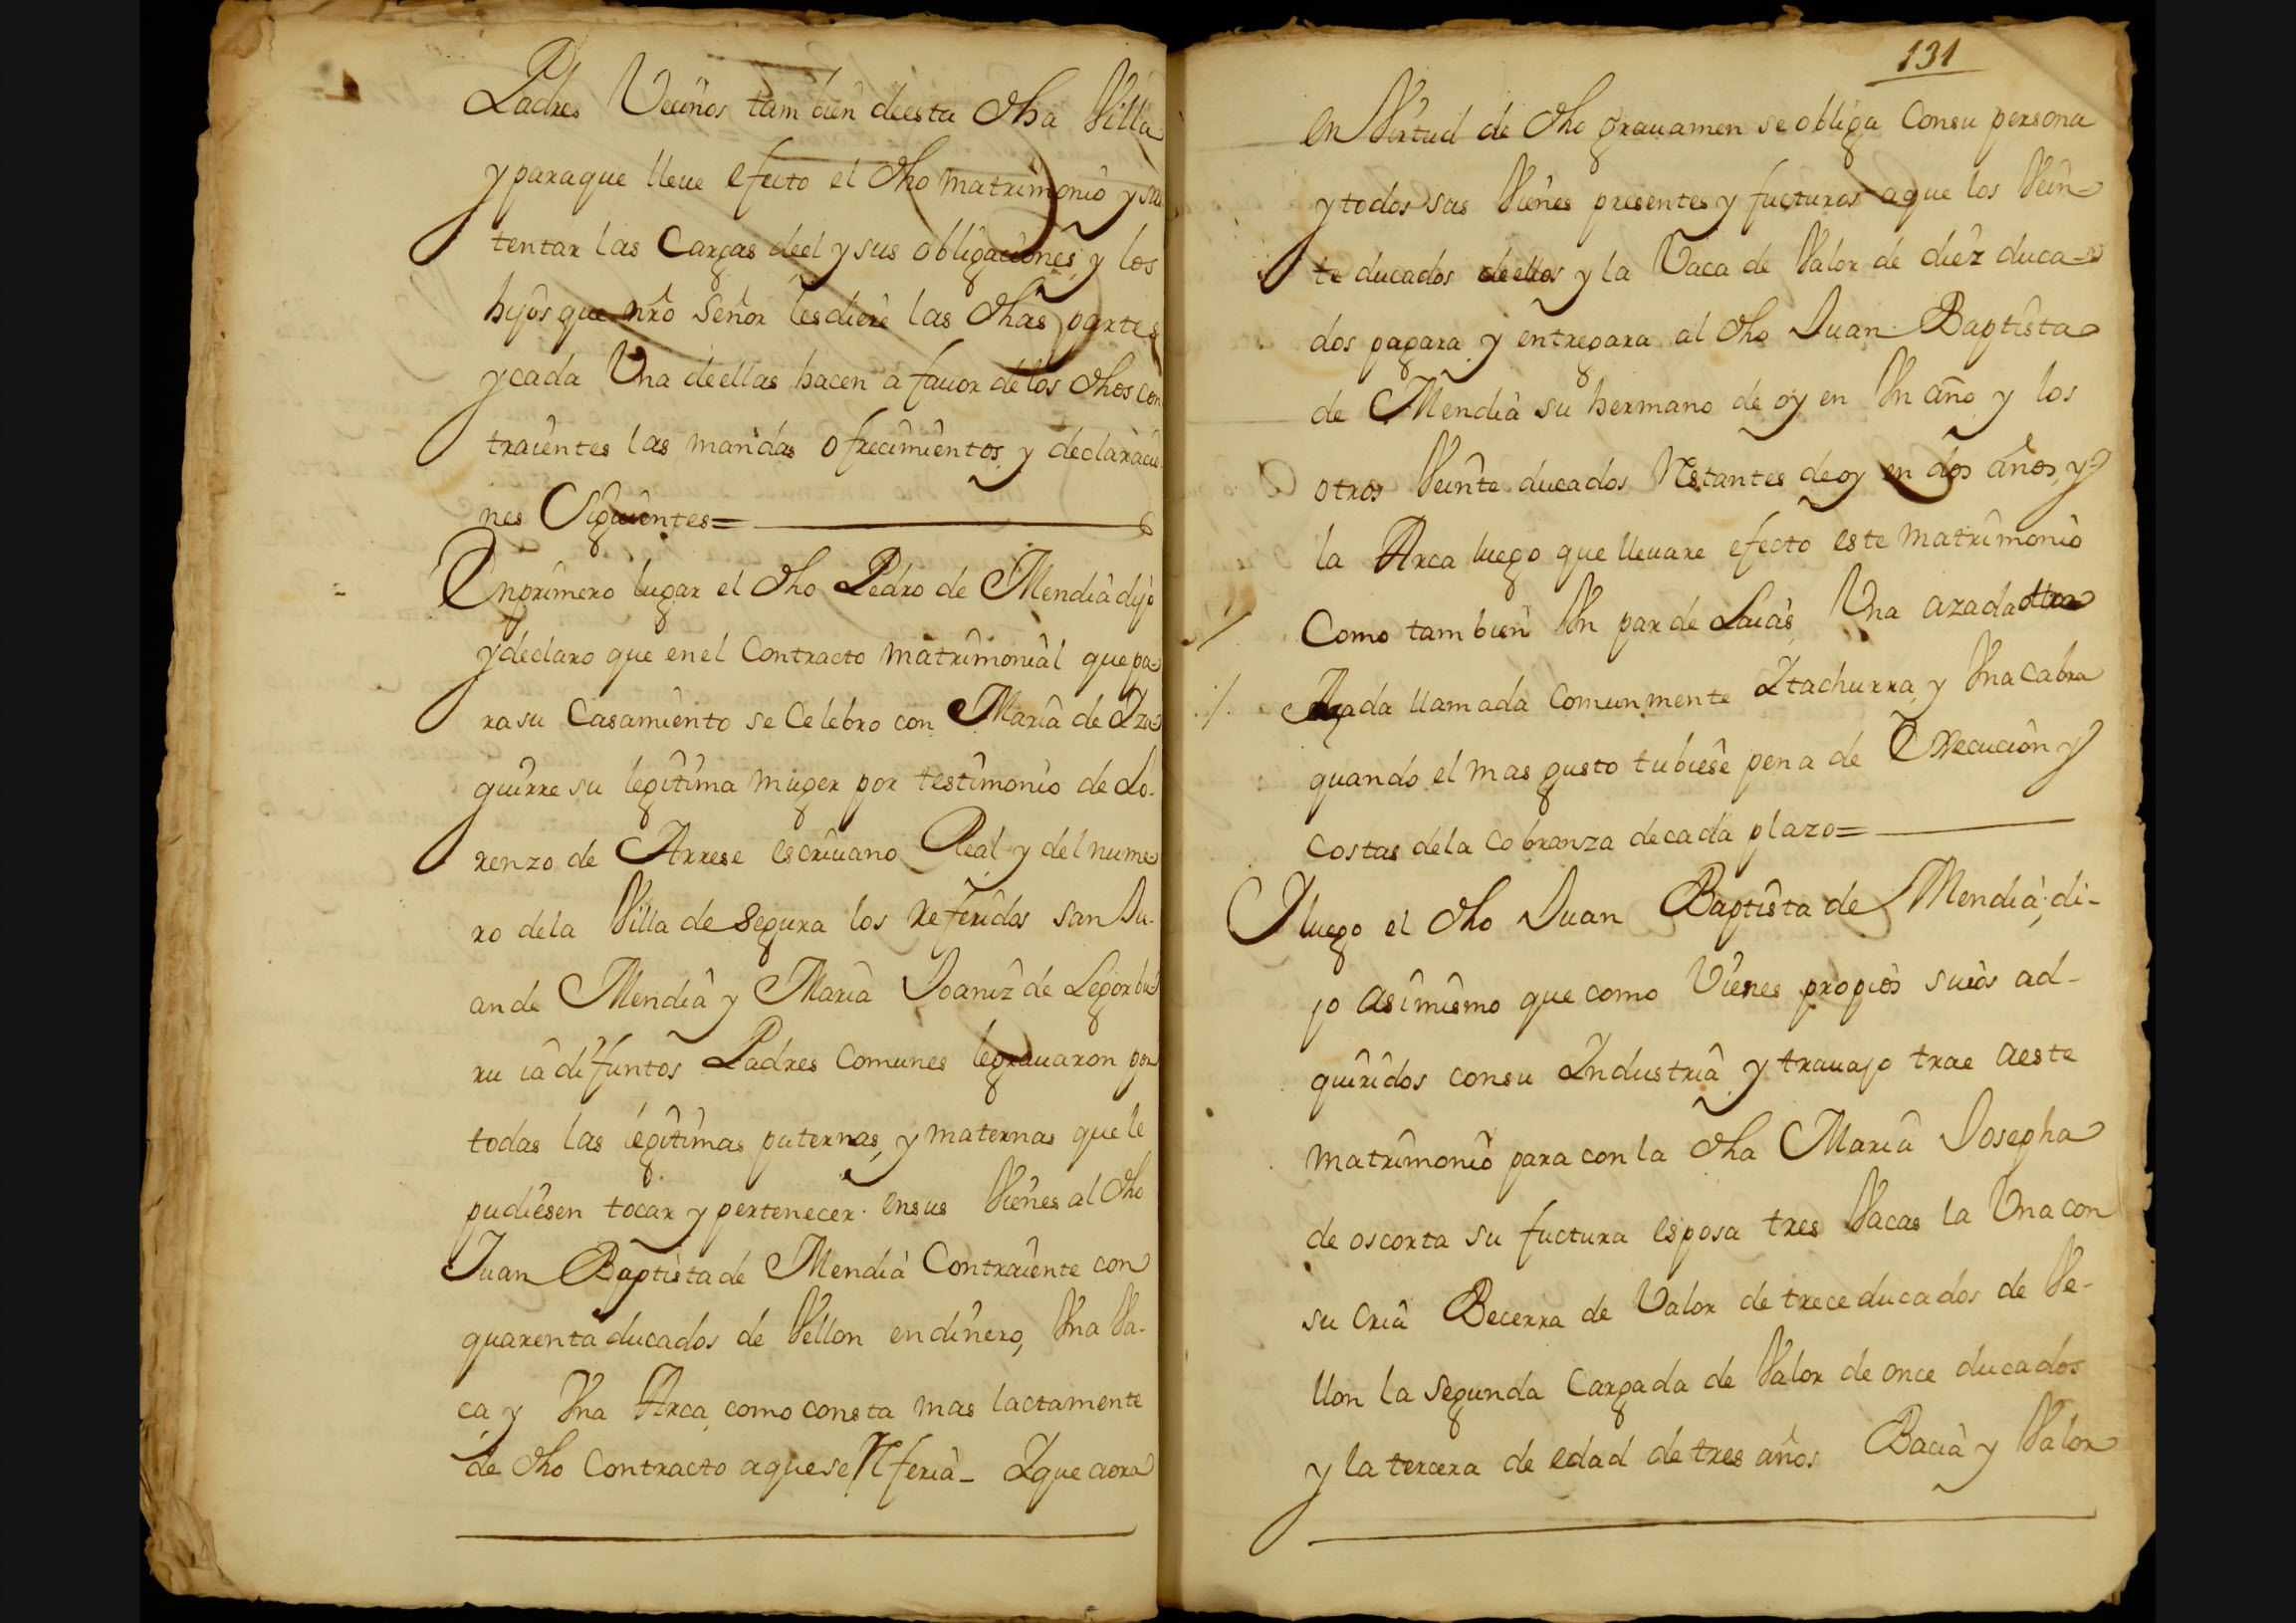 Padres Vecinos tambien deesta dha Villa
yparaque lleue efecto el dho matrimonio y sus
tentar las Cargas deel y sus obligaciones y los
hijos que nro Señor lesdiere las dhas partes
ycada Una deellas hacen a fauor delos dhos con
traientes las mandas ofrecimientos y declaracio
nes Siguientes=
Enprimero lugar el dho Pedro de Mendia dijo
ydeclaro que enel Contracto matrimonial quepa
rasu Casamiento se Celebro con Maria de Yza
guirre su legitima muger por testimonio de Lo-
renzo de Arrese escriuano Real y del nume
ro dela Villa de Segura los Referidos San Ju-
ande Mendia y Maria Joaniz de Legorbu
ru ia difuntos Padres Comunes legrauaron por
todas las legitimas paternas, y maternas que le
pudiesen tocar y pertenecer ensus Vienes al dho
Juan Baptista de Mendia Contraiente con
quarenta ducados de Vellon endinero, Vna Va-
ca y Vna Arca como consta mas lactamente
de dho Contracto aquese Referia_ Yque aora
131
en Virtud de dho grauamen se obliga Consu persona
ytodos sus Vienes presentes y fucturos aque los Vein-
te ducados deellos y la Vaca de Valor de diez duca-
dos pagara y entregara al dho Juan Baptista
de Mendia su hermano de oy en Vn año y los
otros Veinte ducados Restantes deoy en dos años, y
la Arca luego que lleuare efecto este matrimonio
Como tambien Vn par de Laias Una azada otra
Azada llamada Comunmente Ytachurra y Vna Cabra
quando el mas gusto tubiese pena de Execucion y
Costas dela Cobranza decada plazo=
Yluego el dho Juan Baptista de Mendia; di-
jo asimismo que como Vienes propios suios ad-
quiridos consu Yndustria y trauajo trae aeste
matrimonio para con la dha Maria Josepha
de oscorta su fuctura esposa tres Vacas la Una con
su Cria Becerra de Valor de trece ducados de Ve-
llon la segunda Cargada de Valor de once ducados
y la tercera de edad de tres años Bacia y Valor